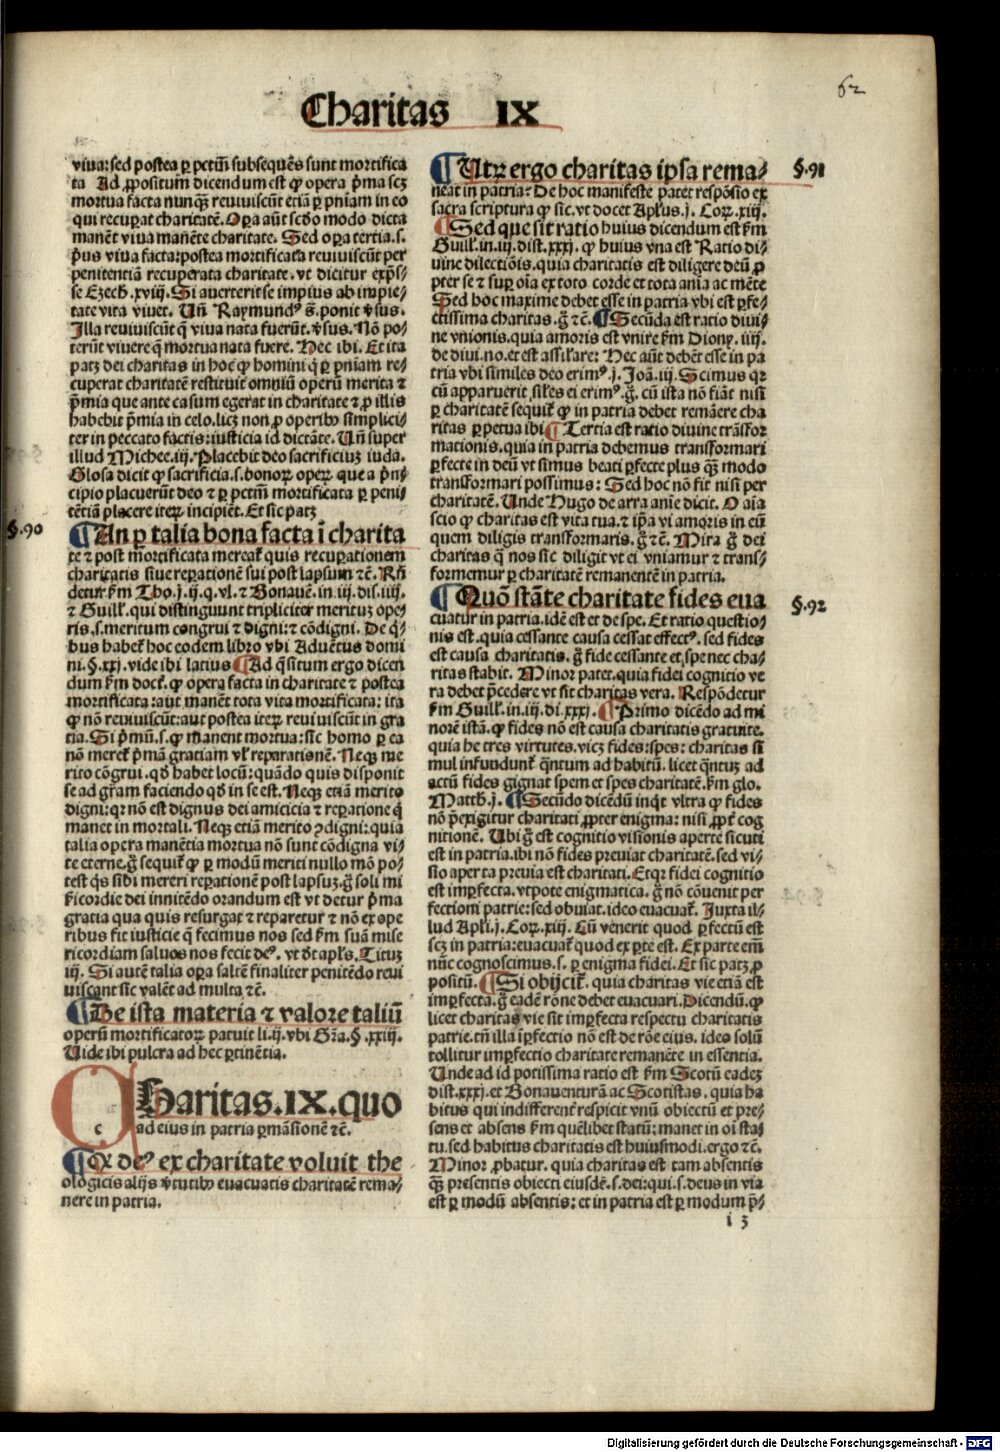 62
Charitas IX
viua: sed postea ꝑ pctm̄ subsequēs sunt mortifica
ta Ad ꝓpositum dicendum est ꝙ opera p̄ma scꝫ
mortua facta nunqᷓꝫ reuiuiscūt etiā ꝑ pniam in eo
qui recuꝑat charitatē. Oꝑa aūt scd̄o modo dicta
manēt viua manēte charitate. Sed oꝑa tertia .s.
p̄us viua facta: postea mortificata reuiuiscūt per
penitentiā recuperata charitate. vt dicitur exp̄s⸗
se Ezech. xviij. Si auerterit se impius ab impie⸗
tate vita viuet. Un̄ Raymundꝰ s̄. ponit v̄sus.
Illa reuiuiscūt q̄ viua nata fuerūt. v̄sus. Nō po⸗
terūt viuere q̄ mortua nata fuere. Hec ibi. Et ita
patꝫ dei charitas in hoc ꝙ homini q̄ ꝑ pniam re⸗
cuperat charitatē restituit omniū operū merita ⁊
p̄mia que ante casum egerat in charitate ⁊ ꝓ illis
habebit p̄mia in celo. licꝫ non ꝓ operibꝰ simplici⸗
ter in peccato factis: iusticia id dictāte. Un̄ super
illud Michee. iij. Placebit deo sacrificiuꝫ iuda.
Glosa dicit ꝙ sacrificia .s. bonoꝝ operꝝ que a p̄n⸗
cipio placuerūt deo ⁊ ꝑ pctm̄ mortificata ꝑ peni⸗
tētiā placere iterꝝ incipiēt. Et sic patꝫ
§.90
¶ An ꝑ talia bona facta ī charita
te ⁊ post mortificata mereat̄ quis recuꝑationem
charitatis siue reꝑationē sui post lapsum ⁊c̄. Rn̄
detur ẜm Tho. j. ij. q. vl. ⁊ Bonauē. in. iij. dis. iiij.
⁊ Guill̄. qui distinguunt tripliciter meritum ope⸗
ris .s. meritum congrui ⁊ digni: ⁊ cōdigni. De q̄⸗
bus habet̄ hoc eodem libro vbi Aduētus domi
ni. §. xxj. vide ibi latius ¶ Ad q̄situm ergo dicen
dum ẜm doct. ꝙ opera facta in charitate ⁊ postea
mortificata: aut manēt tota vita mortificata: ita
ꝙ nō reuiuiscūt: aut postea iterꝝ reuiuiscūt in gra
tia. Si p̄mū .s. ꝙ manent mortua: sic homo ꝑ ea
nō meret̄ p̄mā gratiam vl̓ reparationē. Neqꝫ me
rito cōgrui. qd̓ habet locū: quādo quis disponit
se ad gr̄am faciendo qd̓ in se est. Neqꝫ etiā merito
digni: qꝛ nō est dignus dei amicicia ⁊ reꝑatione q̄
manet in mortali. Neqꝫ etiā merito ꝯdigni: quia
talia opera manētia mortua nō sunt cōdigna vi⸗
te eterne. g̊ sequit̄ ꝙ ꝑ modū meriti nullo mō po⸗
test qͥs sibi mereri reꝑationē post lapsuꝫ. g̊ soli mi
ẜicordie dei innitēdo orandum est vt detur p̄ma
gratia qua quis resurgat ⁊ reparetur ⁊ nō ex ope
ribus fit iusticie q̄ fecimus nos sed ẜm suā mise
ricordiam saluos nos fecit deꝰ. vt d̓t apl̓s. Tituꝫ
iij. Si autē talia oꝑa saltē finaliter penitēdo reui
uiscant sic valēt ad multa ⁊c̄.
¶ De ista materia ⁊ valore taliū
operū mortificatoꝝ patuit li. ij. vbi Gr̄a. §. xxiij.
Uide ibi pulcra ad hec ꝑtinētia.
c
CHaritas. IX. quo
ad eius in patria ꝑmāsionē ⁊c̄.
¶ Qꝛ deꝰ ex charitate voluit the
ologicis alijs v̄tutibꝰ euacuatis charitatē rema⸗
nere in patria.
¶ Utrꝝ ergo charitas ipsa rema⸗
§.91
neat in patria: De hoc manifeste patet respōsio ex
sacra scriptura ꝙ sic. vt docet Apl̓us. j. Coꝝ. xiij.
¶ Sed que sit ratio huius dicendum est ẜm
Guill̄. in. iij. dist. xxxj. ꝙ huius vna est Ratio di⸗
uine dilectiōis. quia charitatis est diligere deū ꝓ
pter se ⁊ suꝑ oīa ex toto corde et tota anīa ac mēte
Sed hoc maxime debet esse in patria vbi est ꝑfe⸗
ctissima charitas. g̊ ⁊c̄. ¶ Secūda est ratio diui⸗
ne vnionis. quia amoris est vnire ẜm Diony. iiij.
de diui. no. et est assil̓are: Hec aūt debēt esse in pa
tria vbi similes deo erimꝰ. j. Joā. iij. Scimus qꝛ
cū apparuerit sil̓es ei erimꝰ. g̊. cū ista nō fiāt nisi
ꝑ charitatē sequit̄ ꝙ in patria debet remānere cha
ritas ꝑpetua ibi ¶ Tertia est ratio diuine trāsfor
mationis. quia in patria debemus transformari
ꝑfecte in deū vt simus beati ꝑfecte plus qᷓꝫ modo
transformari possimus: Sed hoc nō fit nisi per
charitatē. Unde Hugo de arra anīe dicit. O aīa
scio ꝙ charitas est vita tua. ⁊ ip̄a vi amoris in eū
quem diligis transformaris. g̊ ⁊c̄. Mira g̊ dei
charitas q̄ nos sic diligit vt ei vniamur ⁊ trans⸗
formemur ꝑ charitatē remanentē in patria.
¶ Quō stāte charitate fides eua
§.92
cuatur in patria. idē est et de spe. Et ratio questio⸗
nis est. quia cessante causa cessat effectꝰ. sed fides
est causa charitatis. g̊ fide cessante et spe nec cha⸗
ritas stabit. Minor patet. quia fidei cognitio ve
ra debet p̄cedere vt sit charitas vera. Respōdetur
ẜm Guill̄. in. iij. di. xxxj. ¶ Primo dicēdo ad mi
norē istā. ꝙ fides nō est causa charitatis gratuite.
quia he tres virtutes. vicꝫ fides: spes: charitas si
mul infundunt̄ qͣntum ad habitū. licet qͣntuꝫ ad
actū fides gignat spem et spes charitatē. ẜm glo.
Matth. j. ¶ Secūdo dicēdū inqͥt vltra ꝙ fides
nō p̄exigitur charitati ꝓpter enigma: nisi ꝓpt̄ cog
nitionē. Ubi g̊ est cognitio visionis aperte sicuti
est in patria. ibi nō fides preuiat charitatē. sed vi⸗
sio aperta preuia est charitati. Etqꝛ fidei cognitio
est imꝑfecta. vtpote enigmatica. g̊ nō cōuenit per
fectioni patrie: sed obuiat. ideo euacuat̄. Juxta il⸗
lud Apl̓i. j. Coꝝ. xiij. Cū venerit quod ꝑfectū est
scꝫ in patria: euacuat̄ quod ex ꝑte est. Ex parte em̄
nūc cognoscimus .s. ꝑ enigma fidei. Et sic patꝫ ꝓ
positū. ¶ Si obijcit̄. quia charitas vie etiā est
imꝑfecta. g̊ eadē rōne debet euacuari. Dicendū. ꝙ
licet charitas vie sit imꝑfecta respectu charitatis
patrie. tn̄ illa īꝑfectio nō est de rōe eius. ideo solū
tollitur imꝑfectio charitate remanēte in essentia.
Unde ad id potissima ratio est ẜm Scotū eadeꝫ
dist. xxxj. et Bonauenturā ac Scotistas. quia ha
bitus qui indifferent̄ respicit vnū obiectū et pre⸗
sens et absens ẜm quēlibet statū: manet in oī sta⸗
tu. sed habitus charitatis est huiusmodi. ergo ⁊c̄.
Minor ꝓbatur. quia charitas est tam absentis
qᷓꝫ presentis obiecti eiusdē .s. dei: qui .s. deus in via
est ꝑ modū absentis: et in patria est ꝑ modum p̄⸗
i 3
Digitalisierung gefördert durch die Deutsche Forschungsgemeinschaft - DFG